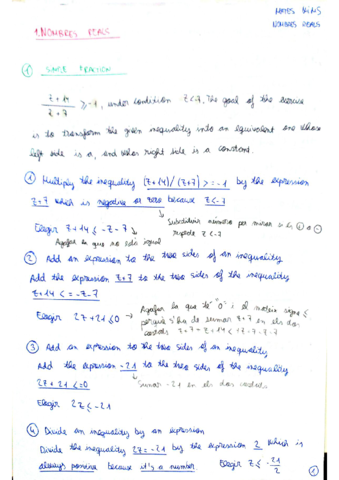 MATES MIMS
NOMBRES REALS
1. NOMBRES REALS
① SIMPLE FRACTION
z+14/z+7 ≥ -1, under condition z<-7. The goal of the exercise
is to transform the given inequality into an equivalent one whose
left side is a, and whose right side is a constant.
① Multiply the inequality (z+14)/(z+7) >= -1 by the expression
z+7 which is negative or zero because z<-7
Substituir números per mirar si és ⊕ o ⊖
Elegir z+14 ≤ -z-7
respecte z<-7
Agafar la que no està igual
② Add an expression to the two sides of an inequality
Add the expression z+7 to the two sides of the inequality
z+14 <= -z-7
Elegir 2z+21≤0 → Agafar la que té "0" i el mateix signe ≤
perquè s'ha de sumar z+7 en els dos
costats z+7+z+14<+z-7-z-7
③ Add an expression to the two sides of an inequality
Add the expression -21 to the two sides of the inequality
2z+21<=0
Sumar -21 en els dos costats
Elegir 2z≤-21
④ Divide an inequality by an expression
Divide the inequality 2z=-21 by the expression 2 which is
always positive because it's a number. Elegir z≤ -21/2
①